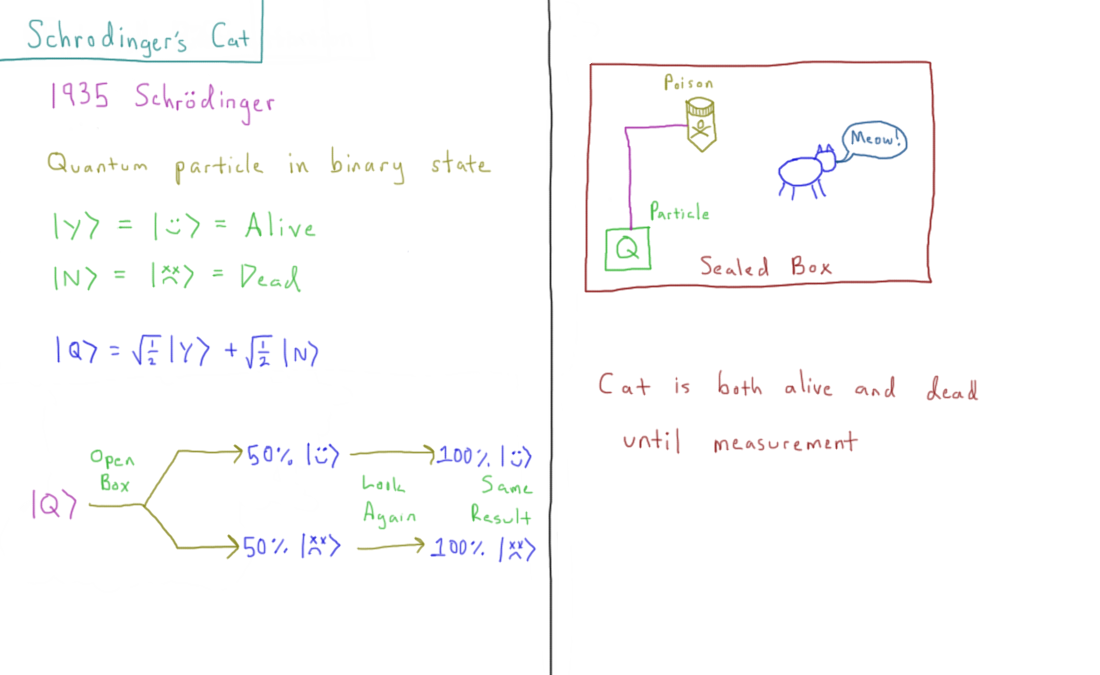 Schrodinger's Cat
1935 Schrödinger
Quantum particle in binary state
|Y⟩ = |:)⟩ = Alive
|N⟩ = |xx⟩ = Dead
|Q⟩ = √½ |Y⟩ + √½ |N⟩
|Q⟩
Open
Box
50% |:)⟩
100% |:)⟩
Look
Again
Same
Result
50% |xx⟩
100% |xx⟩
Poison
Meow!
Particle
Q
Sealed Box
Cat is both alive and dead
until measurement